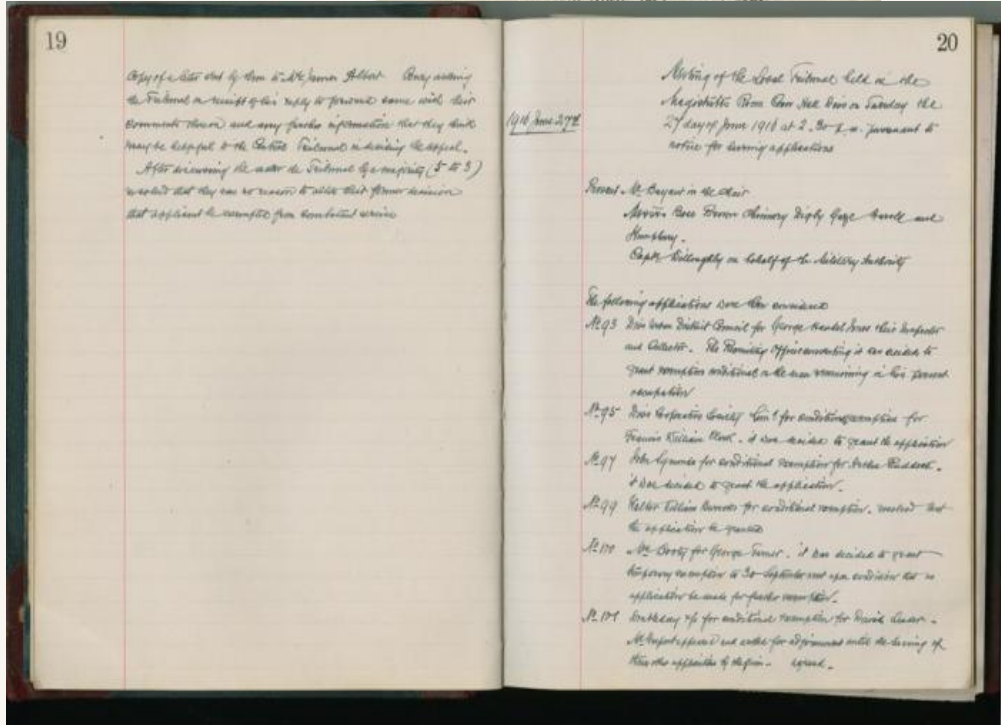 19
Copy of a letter sent by them to Mr James Albert asking
the Tribunal on receipt of his reply to forward same with their
comments thereon and any further information that they think
may be helpful to the Central Tribunal in deciding the appeal.
After discussing the matter the Tribunal by a majority (5 to 3)
resolved that they saw no reason to alter their former decision
that applicant be exempted from combatant service
20
1916 June 27th
Meeting of the Local Tribunal held in the
Magistrates Room Corn Hall Diss on Tuesday the
27 day of June 1916 at 2.30 p.m. pursuant to
notice for hearing applications
Present Mr in the chair
Messrs Chinnery Digby Gaze and
Capt. Willoughby on behalf of the Military Authority
The following applications were then considered
No 93 Diss Urban District Council for George Jones their Inspector
and Collector. The Officer it was decided to
grant exemption conditional on the man remaining in his present
occupation
No 95 Diss for conditional exemption for
Francis William . it was decided to grant the application
No 97 John for conditional exemption for
it was decided to grant the application.
No 99 Walter William for conditional exemption. resolved that
the application be granted
No Mr for George Turner. it was decided to grant
temporary exemption to 30 September next upon condition that no
application be made for further exemption.
No for conditional exemption for David
Mr appeared and asked for adjournment until the hearing of
other by the firm. agreed.